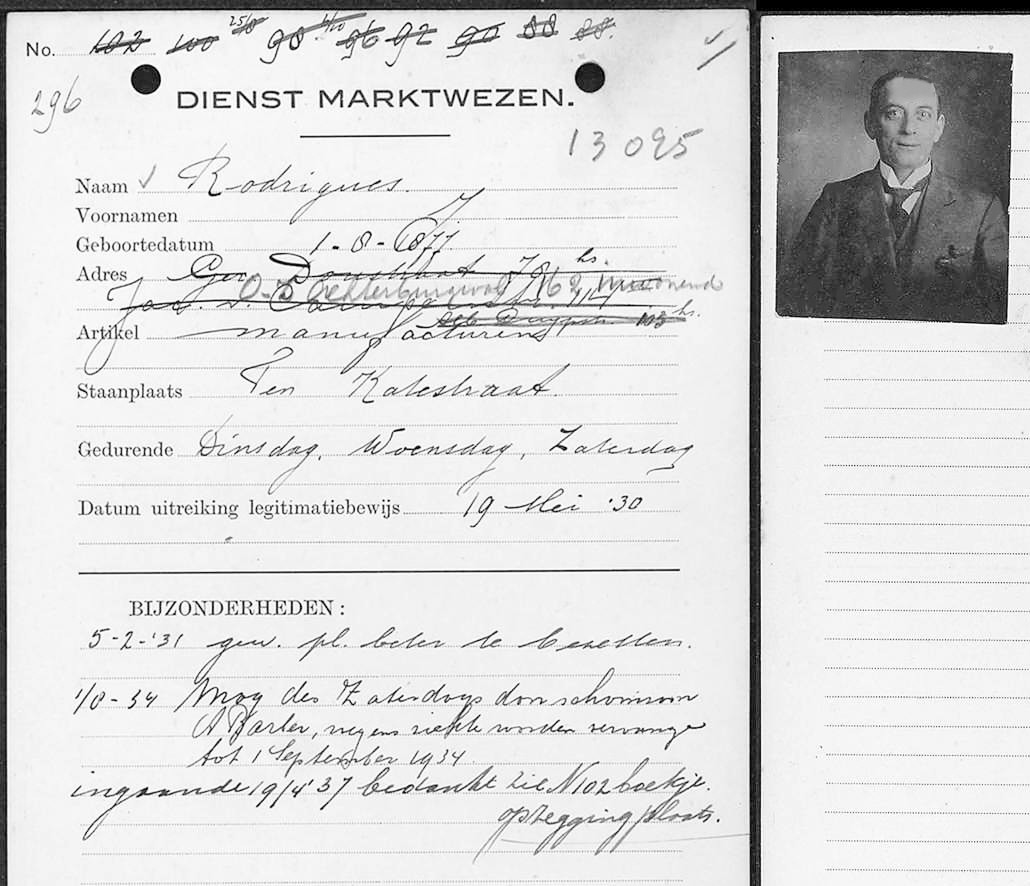 No. 102 100 25/8 98 96 92 90 88 88.
296
DIENST MARKTWEZEN.
13095
Naam Rodrigues.
Voornamen J
Geboortedatum 1-8-1877
Adres Ger. Doustraat 78 hs.
O-Z Achterburgwal 162 Inwonend
Jac. v. Campenstr. 114
103 hs.
Artikel manufacturens
Staanplaats Ten Katestraat.
Gedurende Dinsdag, Woensdag, Zaterdag
Datum uitreiking legitimatiebewijs 19 Mei '30
BIJZONDERHEDEN:
5-2-'31 gew. pl. beter te bezetten.
1/8-34 Mag des Zaterdags door schoonzoon
A Barber, wegens ziekte worden vervange
tot 1 September 1934.
ingaande 19/4'37 bedankt zie N102 boekje.
opzegging plaats.